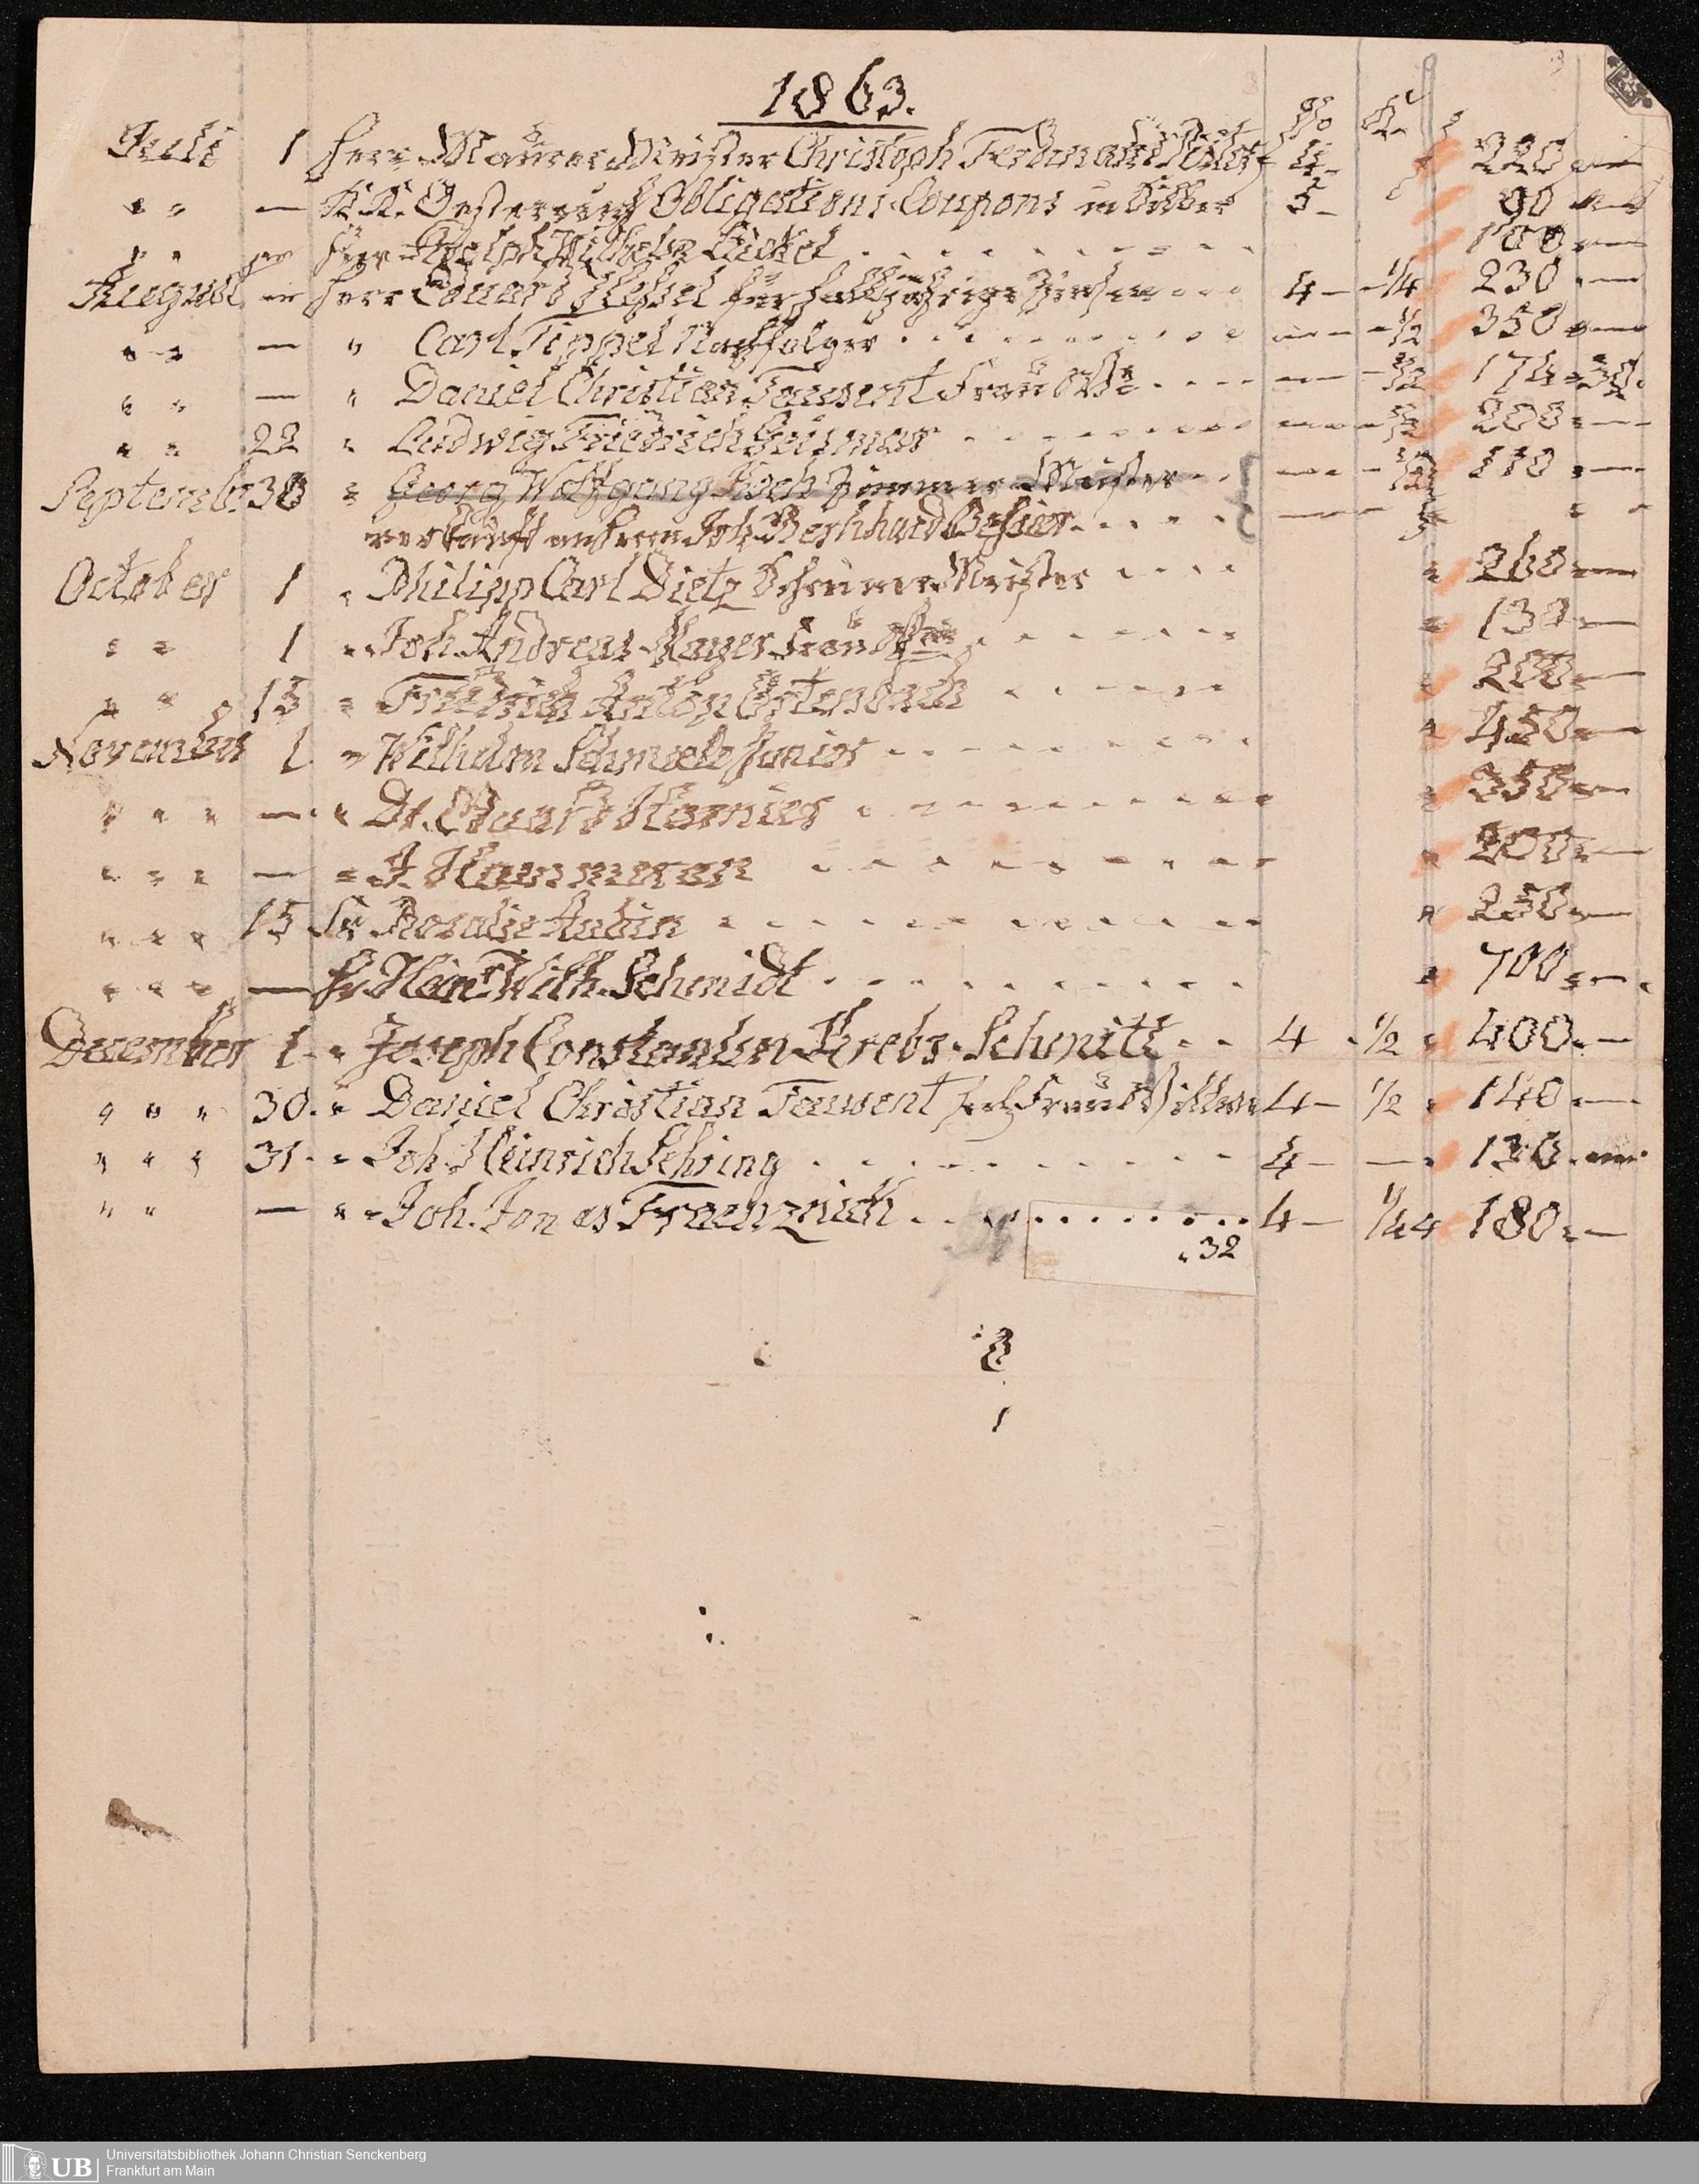 1863.
Juli 1 Herr Maurer Meister Christoph Ferdinand 4 - 220
" " — K.K. Oesterreich Obligations Coupons in Silber 5 - 90
" " Herr Adolph Wilhelm 100
August Herr Eduard für halbjährige Zinsen 4 - 1/4 230 —
" " — " Carl Tippel Nachfolger — 1/2 350 —
" " — " Daniel Christian Tausent Frau — 1/2 174 = 30.
" " 22 " Ludwig Friedrich Geismar — 1/2 200 = —
Septemb: 30 " Georg Wolfgang Koch Zimmer Meister — 1/2 110 = —
verkauft an Herrn Joh. Bernhard
October 1 " Philipp Carl Dietz Schreiner Meister " 260 = —
" " 1 " Joh. Andreas Mayer Frau " 130 —
" " 13 " Friedrich Anton " 200 = —
November 1 " Wilhelm Junior " 450 = —
" " " — " Dr. Eduard Harnier " 350 = —
" " " — " J. Hammeran " 200 = —
" " " 15 Fr Rosalie Aubin " 250 = —
" " " — Hr Wilh. Schmidt " 700 = —
December 1 " Joseph Constantin Krebs-Schmitt 4 - 1/2 " 400 = —
" " " 30. " Daniel Christian Tausent Frau Wittwe 4 - 1/2 " 140 = —
" " " 31 " Joh. Heinrich Sehring 4 - — " 130 = —
" " — " Joh. Jonas Fraenznick 4 - 1/44 180 = —
" 32
1
UB Universitätsbibliothek Johann Christian Senckenberg
Frankfurt am Main